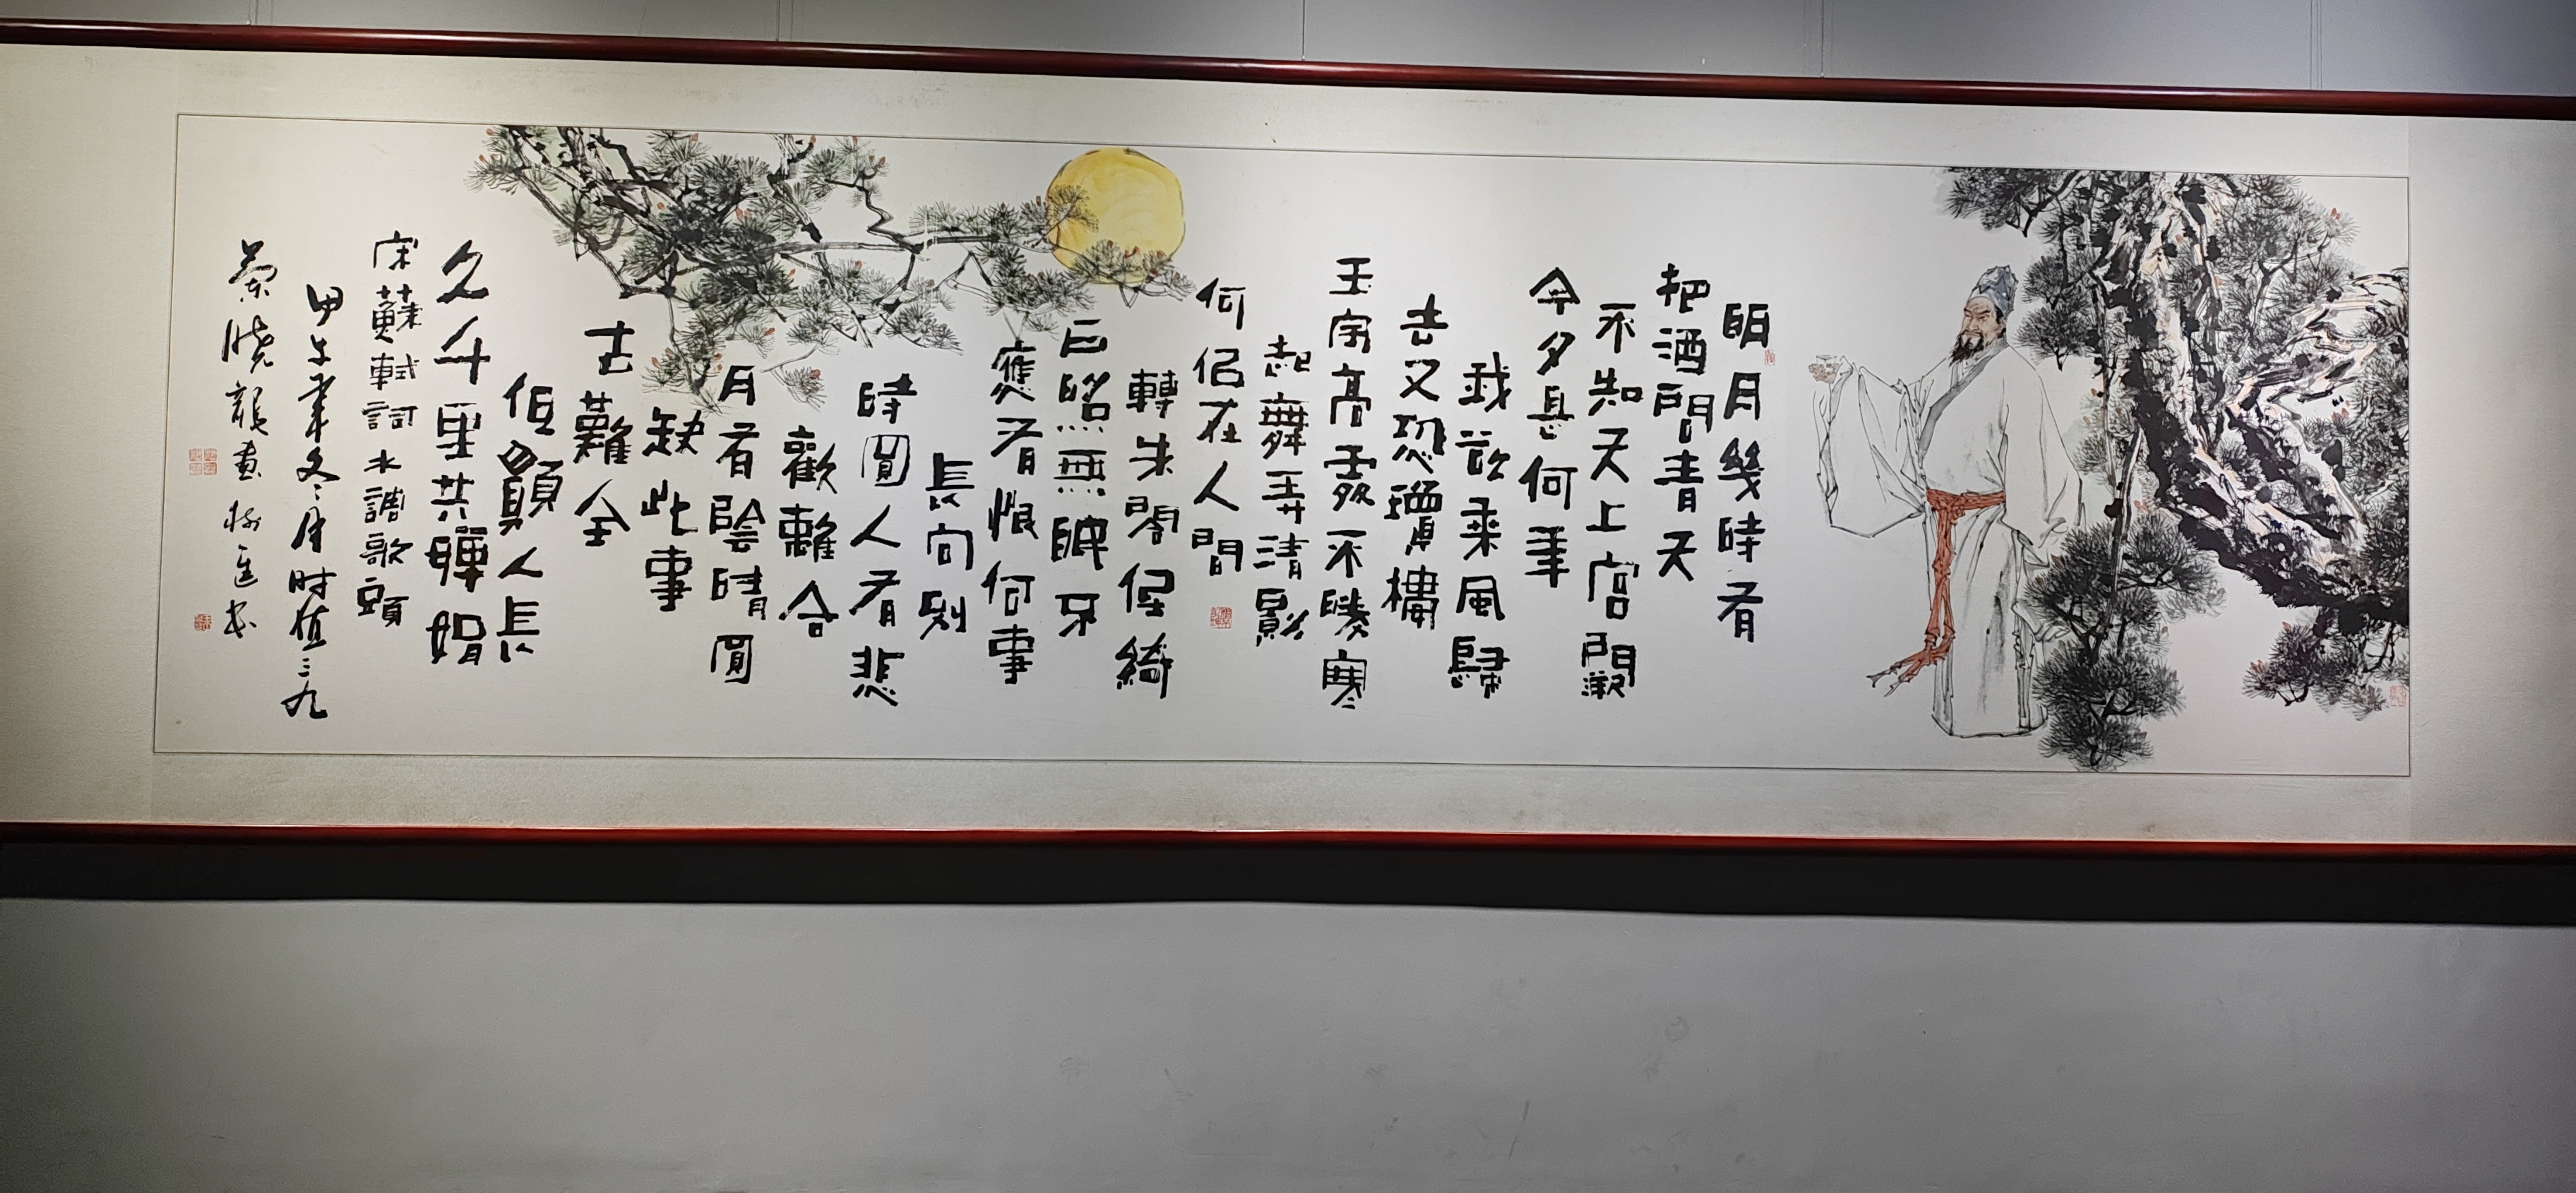 明月幾時有
把酒問青天
不知天上宮闕
今夕是何年
我欲乘風歸
去又恐瓊樓
玉宇高處不勝寒
起舞弄清影
何侣在人間
轉朱閣低綺
户照無眠不
應有恨何事
長向别
時圓人有悲
歡離合
月有陰晴圓
缺此事
古難全
但願人長
久千里共嬋娟
宋蘇軾詞水調歌頭
甲午年冬月时值三九
曉龍畫 書